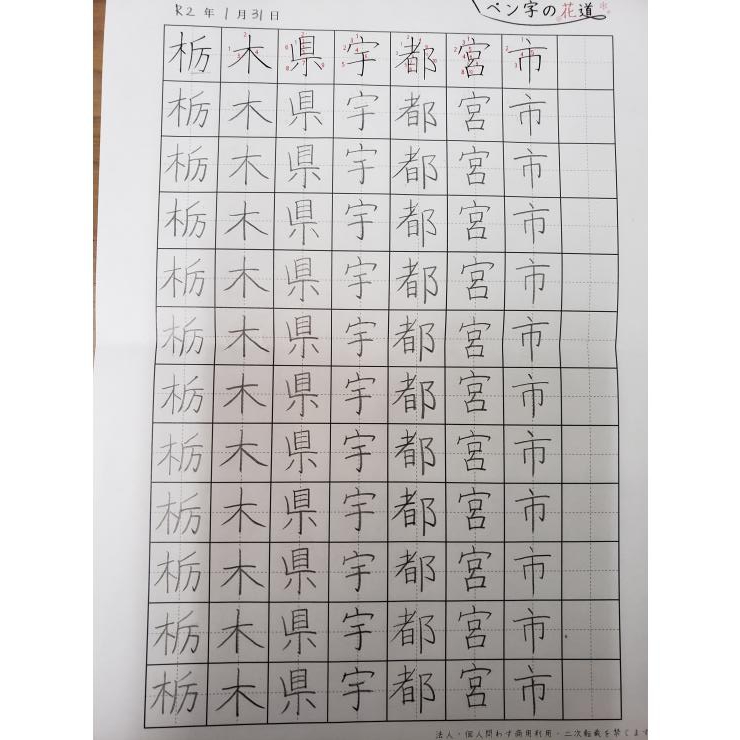 R2年1月31日
ペン字の花道
栃木県宇都宮市
栃木県宇都宮市
栃木県宇都宮市
栃木県宇都宮市
栃木県宇都宮市
栃木県宇都宮市
栃木県宇都宮市
栃木県宇都宮市
栃木県宇都宮市
栃木県宇都宮市
栃木県宇都宮市
栃木県宇都宮市
法人・個人問わず商用利用・二次転載を禁じます